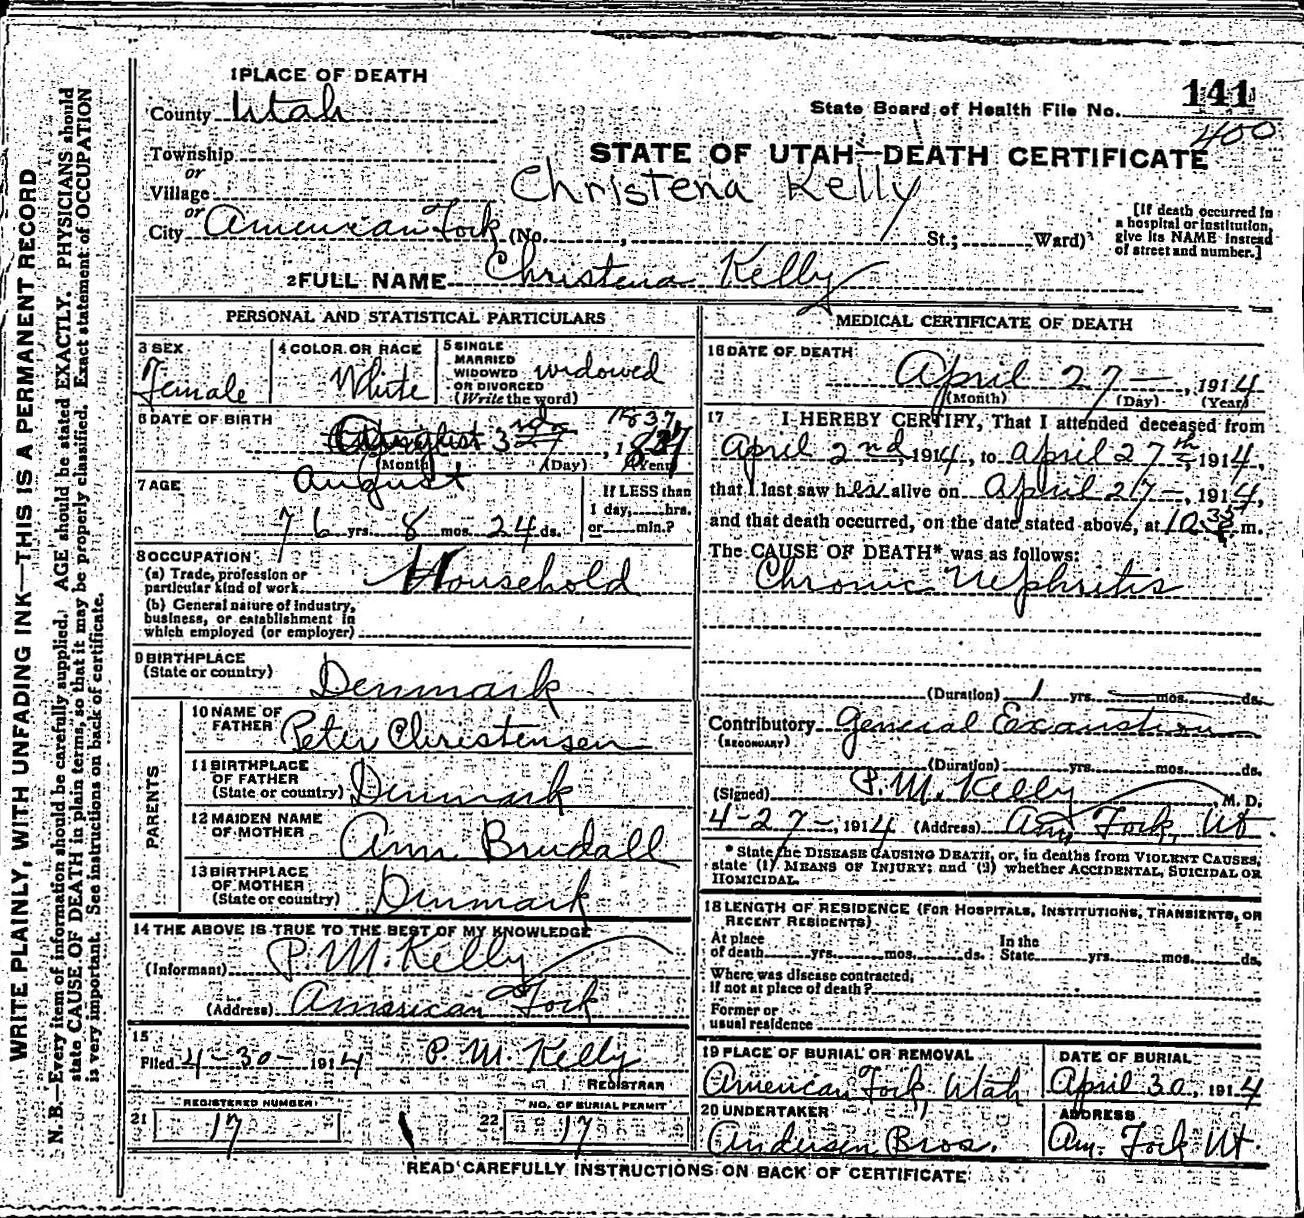 1 PLACE OF DEATH
County Utah
Township
or
Village
or
City American Fork (No. , St.; Ward)
State Board of Health File No. 141
400
STATE OF UTAH—DEATH CERTIFICATE
Christena Kelly
[If death occurred in
a hospital or institution,
give its NAME instead
of street and number.]
2 FULL NAME Christena Kelly
PERSONAL AND STATISTICAL PARTICULARS
3 SEX
Female
4 COLOR OR RACE
White
5 SINGLE
MARRIED
WIDOWED
OR DIVORCED
(Write the word)
widowed
6 DATE OF BIRTH
1837
3rd , 1837
(Month) (Day) (Year)
August
7 AGE
76 yrs. 8 mos. 24 ds.
If LESS than
1 day, hrs.
or min.?
8 OCCUPATION
(a) Trade, profession or
particular kind of work
Household
(b) General nature of Industry,
business, or establishment in
which employed (or employer)
9 BIRTHPLACE
(State or country)
Denmark
PARENTS
10 NAME OF
FATHER
Peter Christensen
11 BIRTHPLACE
OF FATHER
(State or country)
Denmark
12 MAIDEN NAME
OF MOTHER
Ann Brudall
13 BIRTHPLACE
OF MOTHER
(State or country)
Denmark
14 THE ABOVE IS TRUE TO THE BEST OF MY KNOWLEDGE
(Informant) P. M. Kelly
(Address) American Fork
15
Filed 4-30-1914 P. M. Kelly
REGISTRAR
REGISTERED NUMBER
21 17
NO. OF BURIAL PERMIT
22 17
MEDICAL CERTIFICATE OF DEATH
16 DATE OF DEATH
April 27 — , 1914
(Month) (Day) (Year)
17 I HEREBY CERTIFY, That I attended deceased from
April 2nd, 1914, to April 27th, 1914,
that I last saw her alive on April 27 —, 1914,
and that death occurred, on the date stated above, at 10 35 P. m.
The CAUSE OF DEATH* was as follows:
Chronic Nephritis
(Duration) 1 yrs. mos. ds.
Contributory General Exaustion
(SECONDARY)
(Duration) yrs. mos. ds.
(Signed) P. M. Kelly, M. D.
4-27-, 1914 (Address) Am. Fork, Ut
* State the DISEASE CAUSING DEATH, or, in deaths from VIOLENT CAUSES,
state (1) MEANS OF INJURY; and (2) whether ACCIDENTAL, SUICIDAL OR
HOMICIDAL.
18 LENGTH OF RESIDENCE (FOR HOSPITALS, INSTITUTIONS, TRANSIENTS, OR
RECENT RESIDENTS)
At place
of death yrs. mos. ds.
In the
State yrs. mos. ds.
Where was disease contracted,
If not at place of death?
Former or
usual residence
19 PLACE OF BURIAL OR REMOVAL
American Fork, Utah
DATE OF BURIAL
April 30, 1914
20 UNDERTAKER
Andersen Bros.
ADDRESS
Am. Fork Ut.
READ CAREFULLY INSTRUCTIONS ON BACK OF CERTIFICATE
WRITE PLAINLY, WITH UNFADING INK—THIS IS A PERMANENT RECORD
N. B.—Every item of information should be carefully supplied. AGE should be stated EXACTLY. PHYSICIANS should
state CAUSE OF DEATH in plain terms, so that it may be properly classified. Exact statement of OCCUPATION
is very important. See instructions on back of certificate.